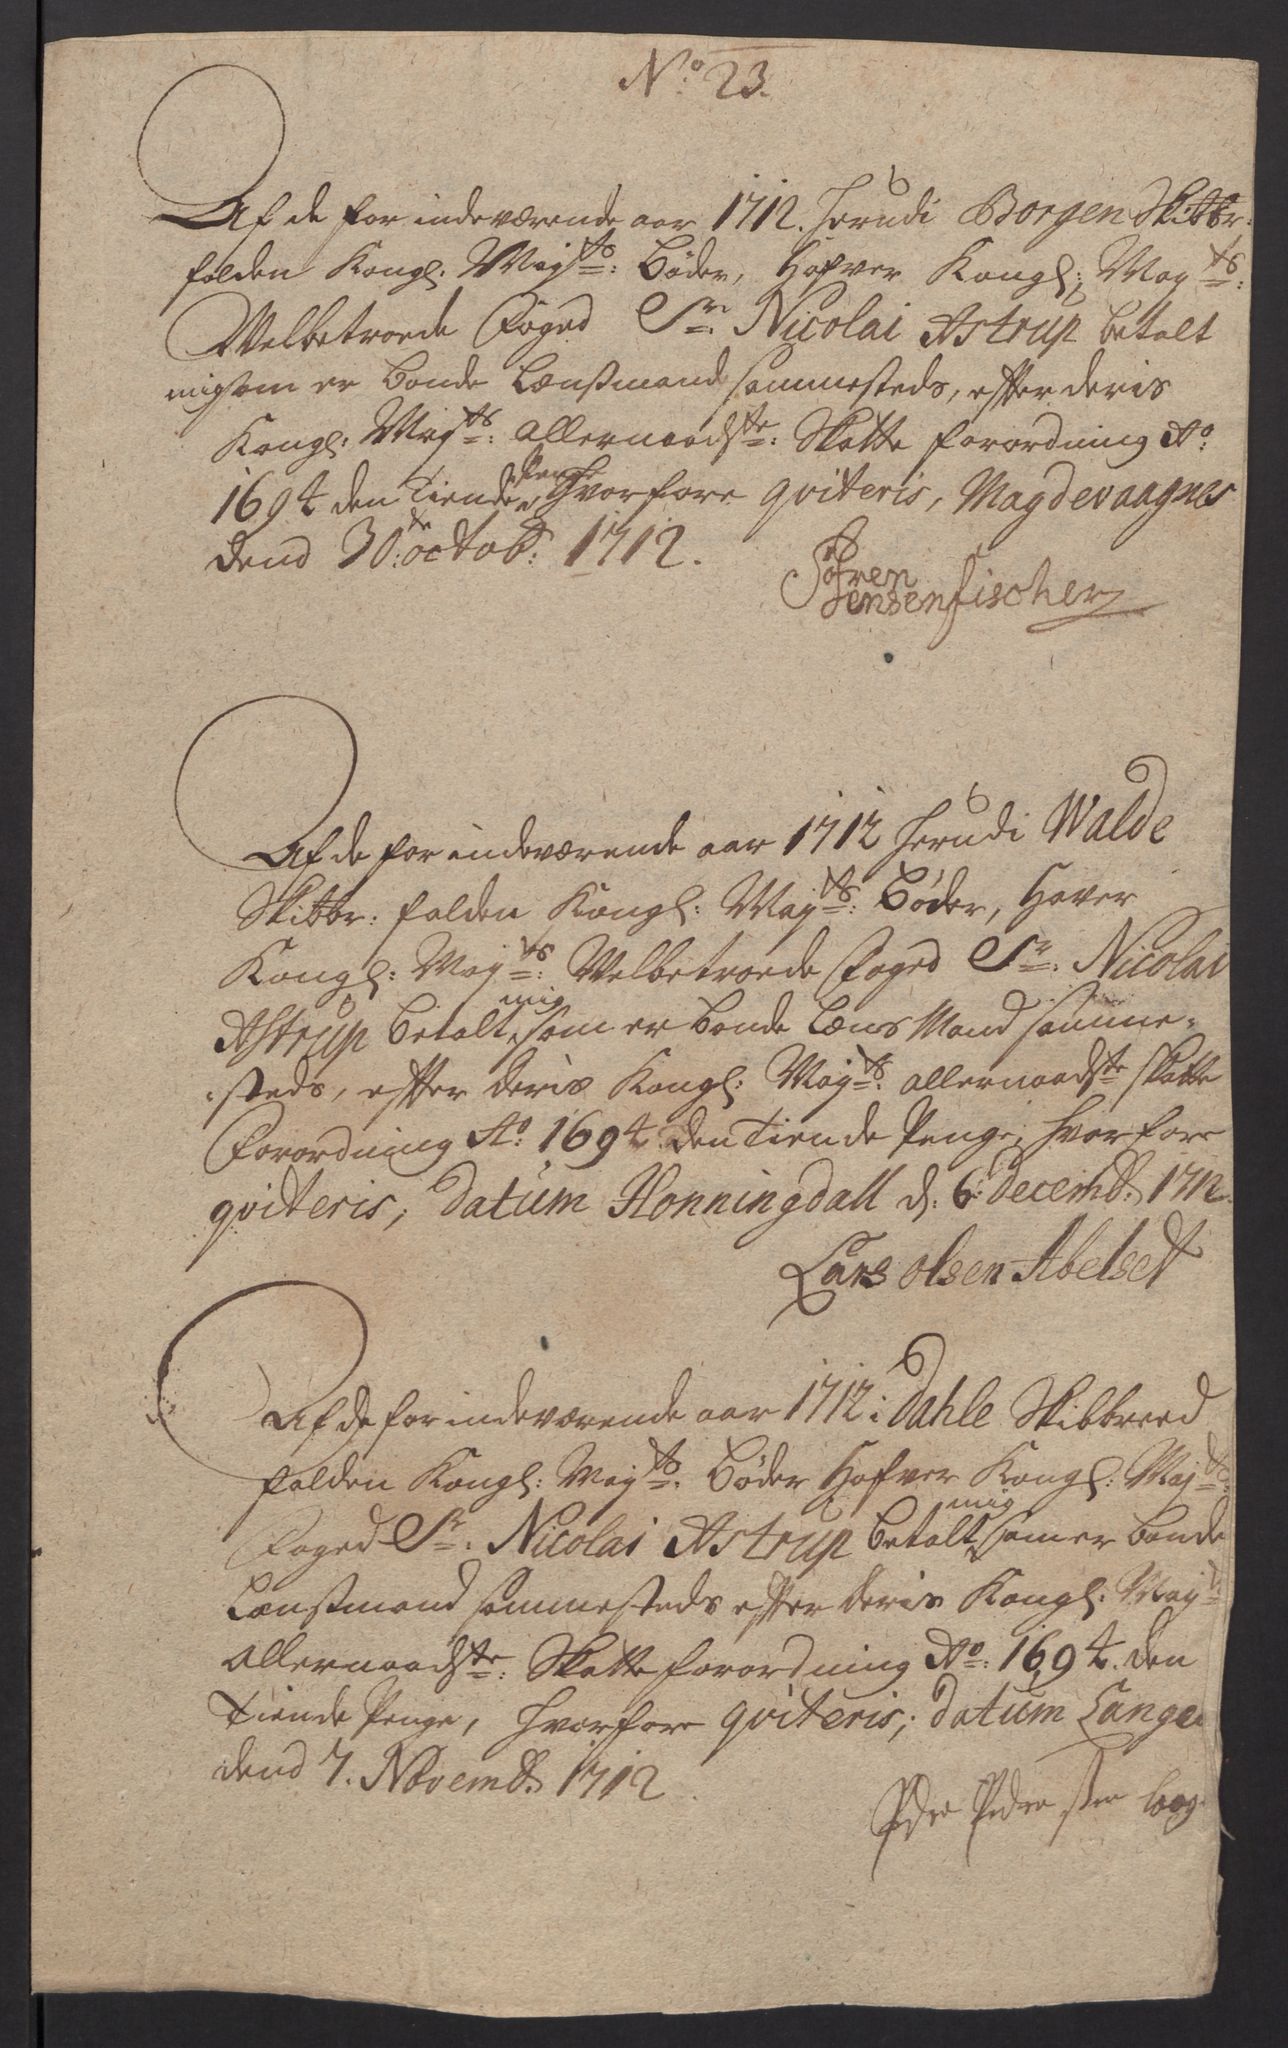 No: 23.
Af de for indeværende aar 1712. herudi Borgen Skibbr:
falden Kongl. Mayts: Bøder, Hafver Kongl: Mayts:
Velbetroede Foged Sr. Nicolai Astrup betalt
mig som er Bonde Lænsmand sammesteds, efter deris
Kongl: Mayts: allernaadste: Skatte forordning Ao:
1694 den Tiende Penge, Hvorfore qviteris, Magdevaagnes
dend 30te: octob: 1712.
Søfren
Jensen fischer
Af de for indeværende aar 1712 herudi Walde
Skibbr: falden Kongl: Mayts: Bøder, Haver
Kongl: Mayts: Velbetroede Foged Sr: Nicolai
Astrup betalt mig som er bonde Læns Mand samme-
steds, efter deris Kongl: Mayts: allernaadste skatte
Forordning Ao: 1694 den Tiende Penge, hvorfore
qviteris, datum Honningdall d: 6: decemb: 1712.
Lars olsen Abelset
Af de for indeværende aar 1712 i Dahle Skibbreed
falden Kongl: Mayts. Bøder Hafver Kongl: Mayts:
Foged Sr. Nicolai Astrup betalt mig som er bonde
Lænsmand sammesteds efter deris Kongl: Mayts:
allernaadste: Skatte forordning Ao: 1694. den
Tiende Penge, hvorfore qviteris; datum Lange
dend 7. Novemb: 1712
Peder Peder sen